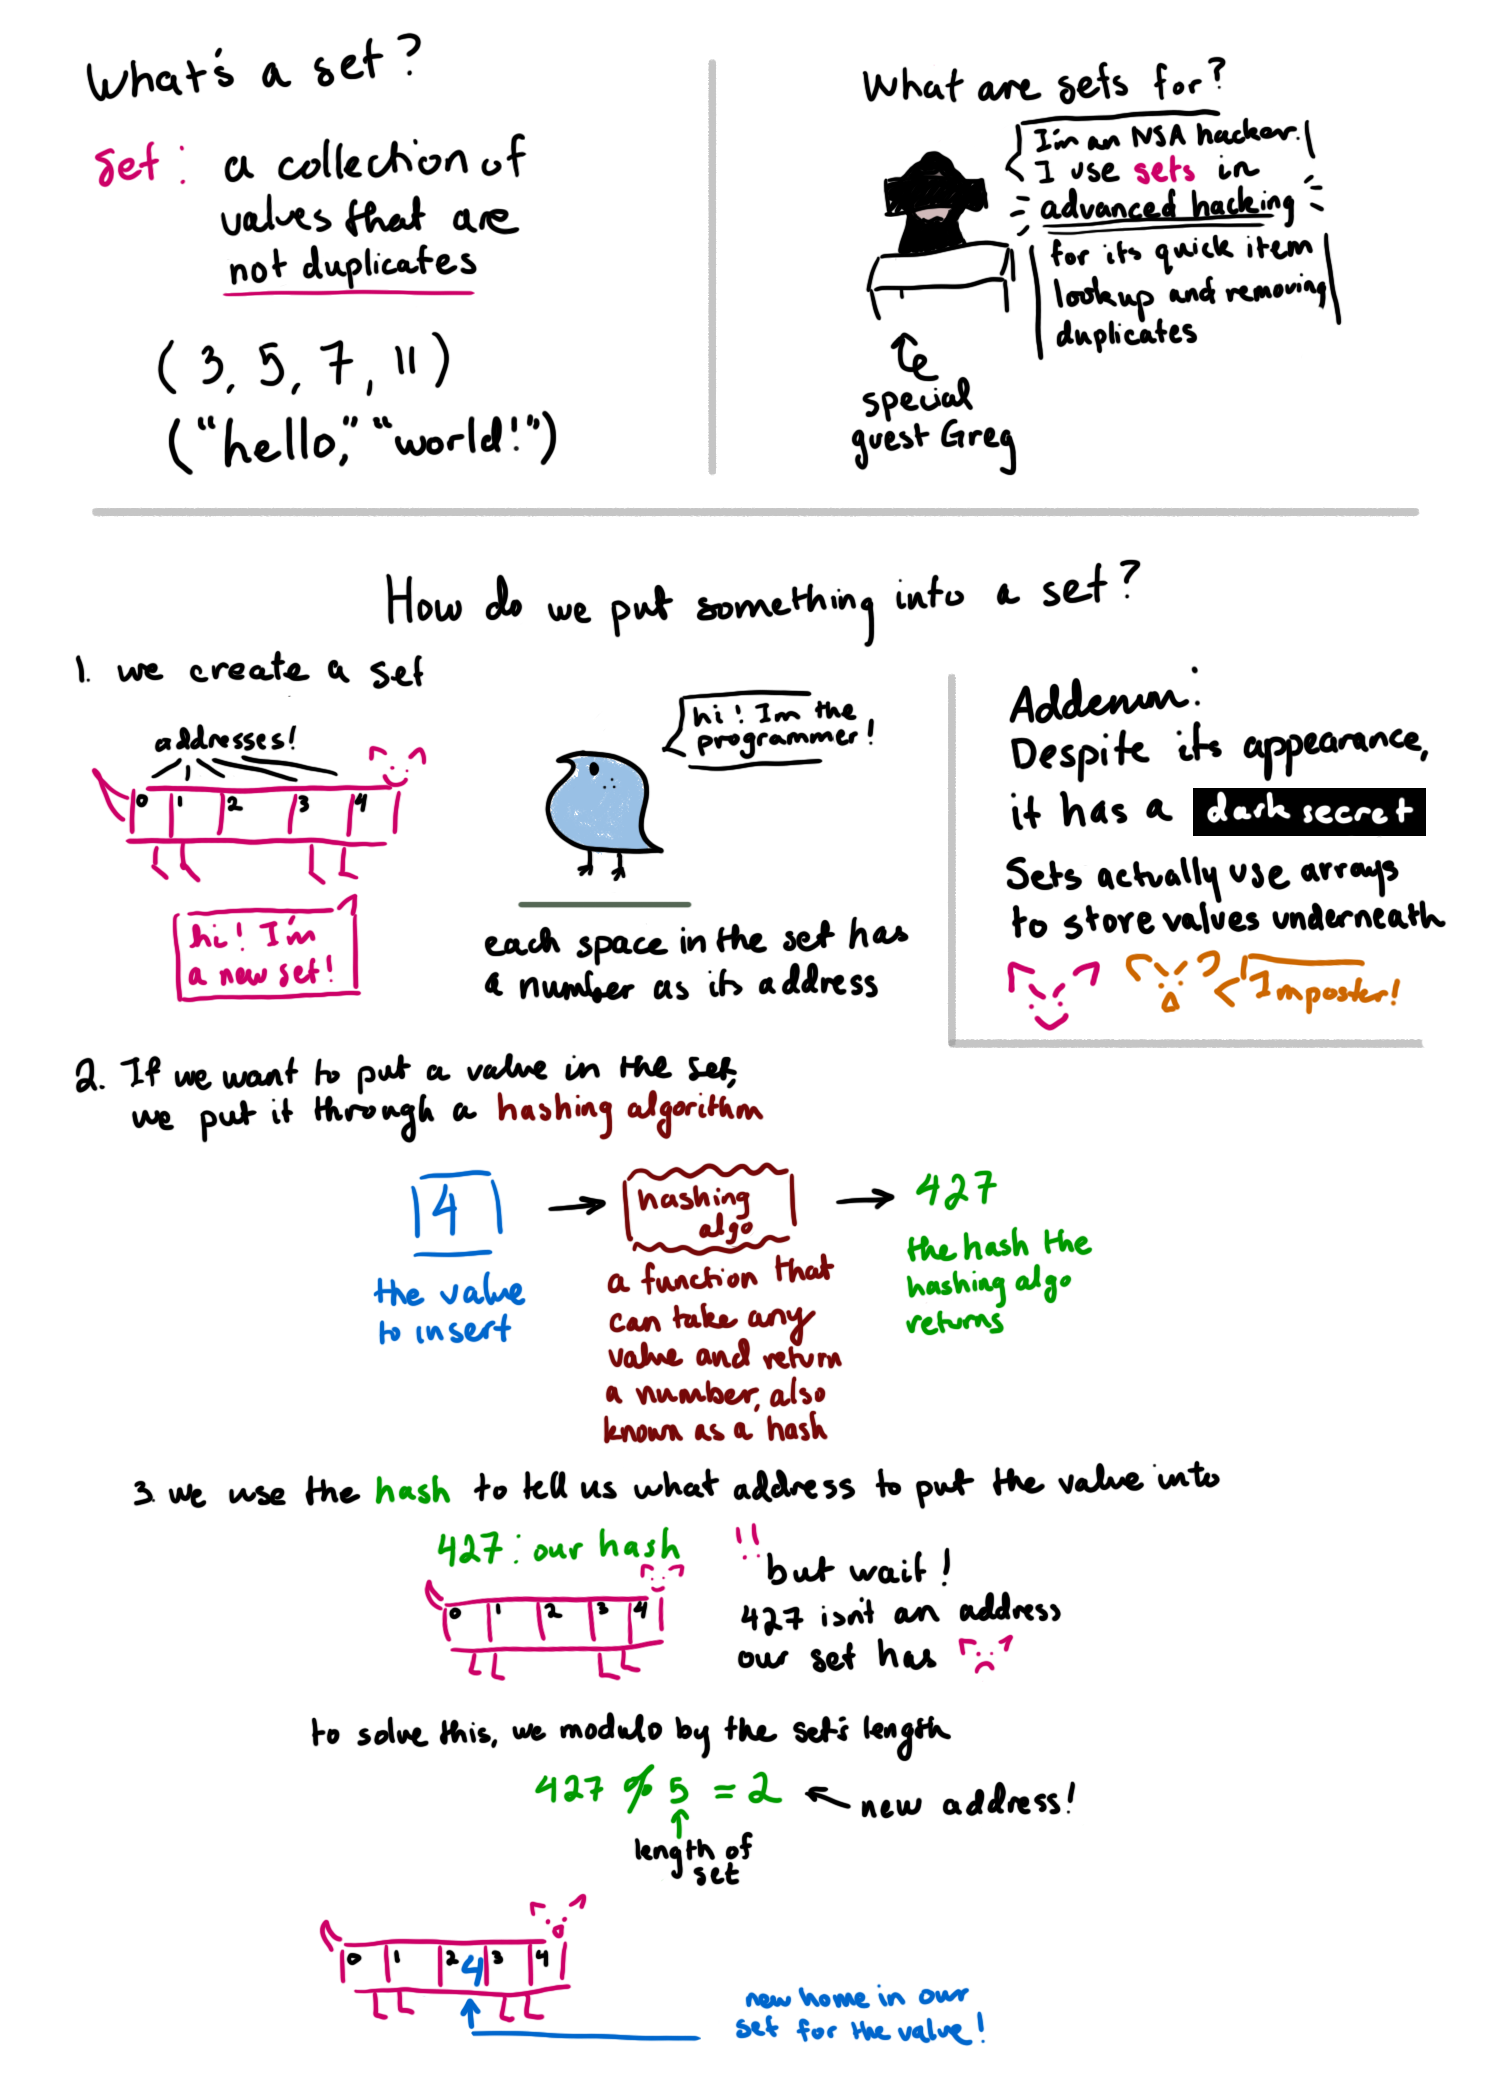 What's a set?
set: a collection of
values that are
not duplicates
(3, 5, 7, 11)
("hello," "world!")
What are sets for?
I'm an NSA hacker.
I use sets in
advanced hacking
for its quick item
lookup and removing
duplicates
special
guest Greg
How do we put something into a set?
1. we create a set
addresses!
0 1 2 3 4
hi! I'm
a new set!
hi! I'm the
programmer!
each space in the set has
a number as its address
Addenum:
Despite its appearance,
it has a dark secret
Sets actually use arrays
to store values underneath
Imposter!
2. If we want to put a value in the set,
we put it through a hashing algorithm
4
the value
to insert
hashing
algo
a function that
can take any
value and return
a number, also
known as a hash
427
the hash the
hashing algo
returns
3. we use the hash to tell us what address to put the value into
427: our hash
0 1 2 3 4
!!
but wait!
427 isn't an address
our set has
to solve this, we modulo by the set's length
427 % 5 = 2
new address!
length of
set
0 1 2 4 3 4
new home in our
set for the value!